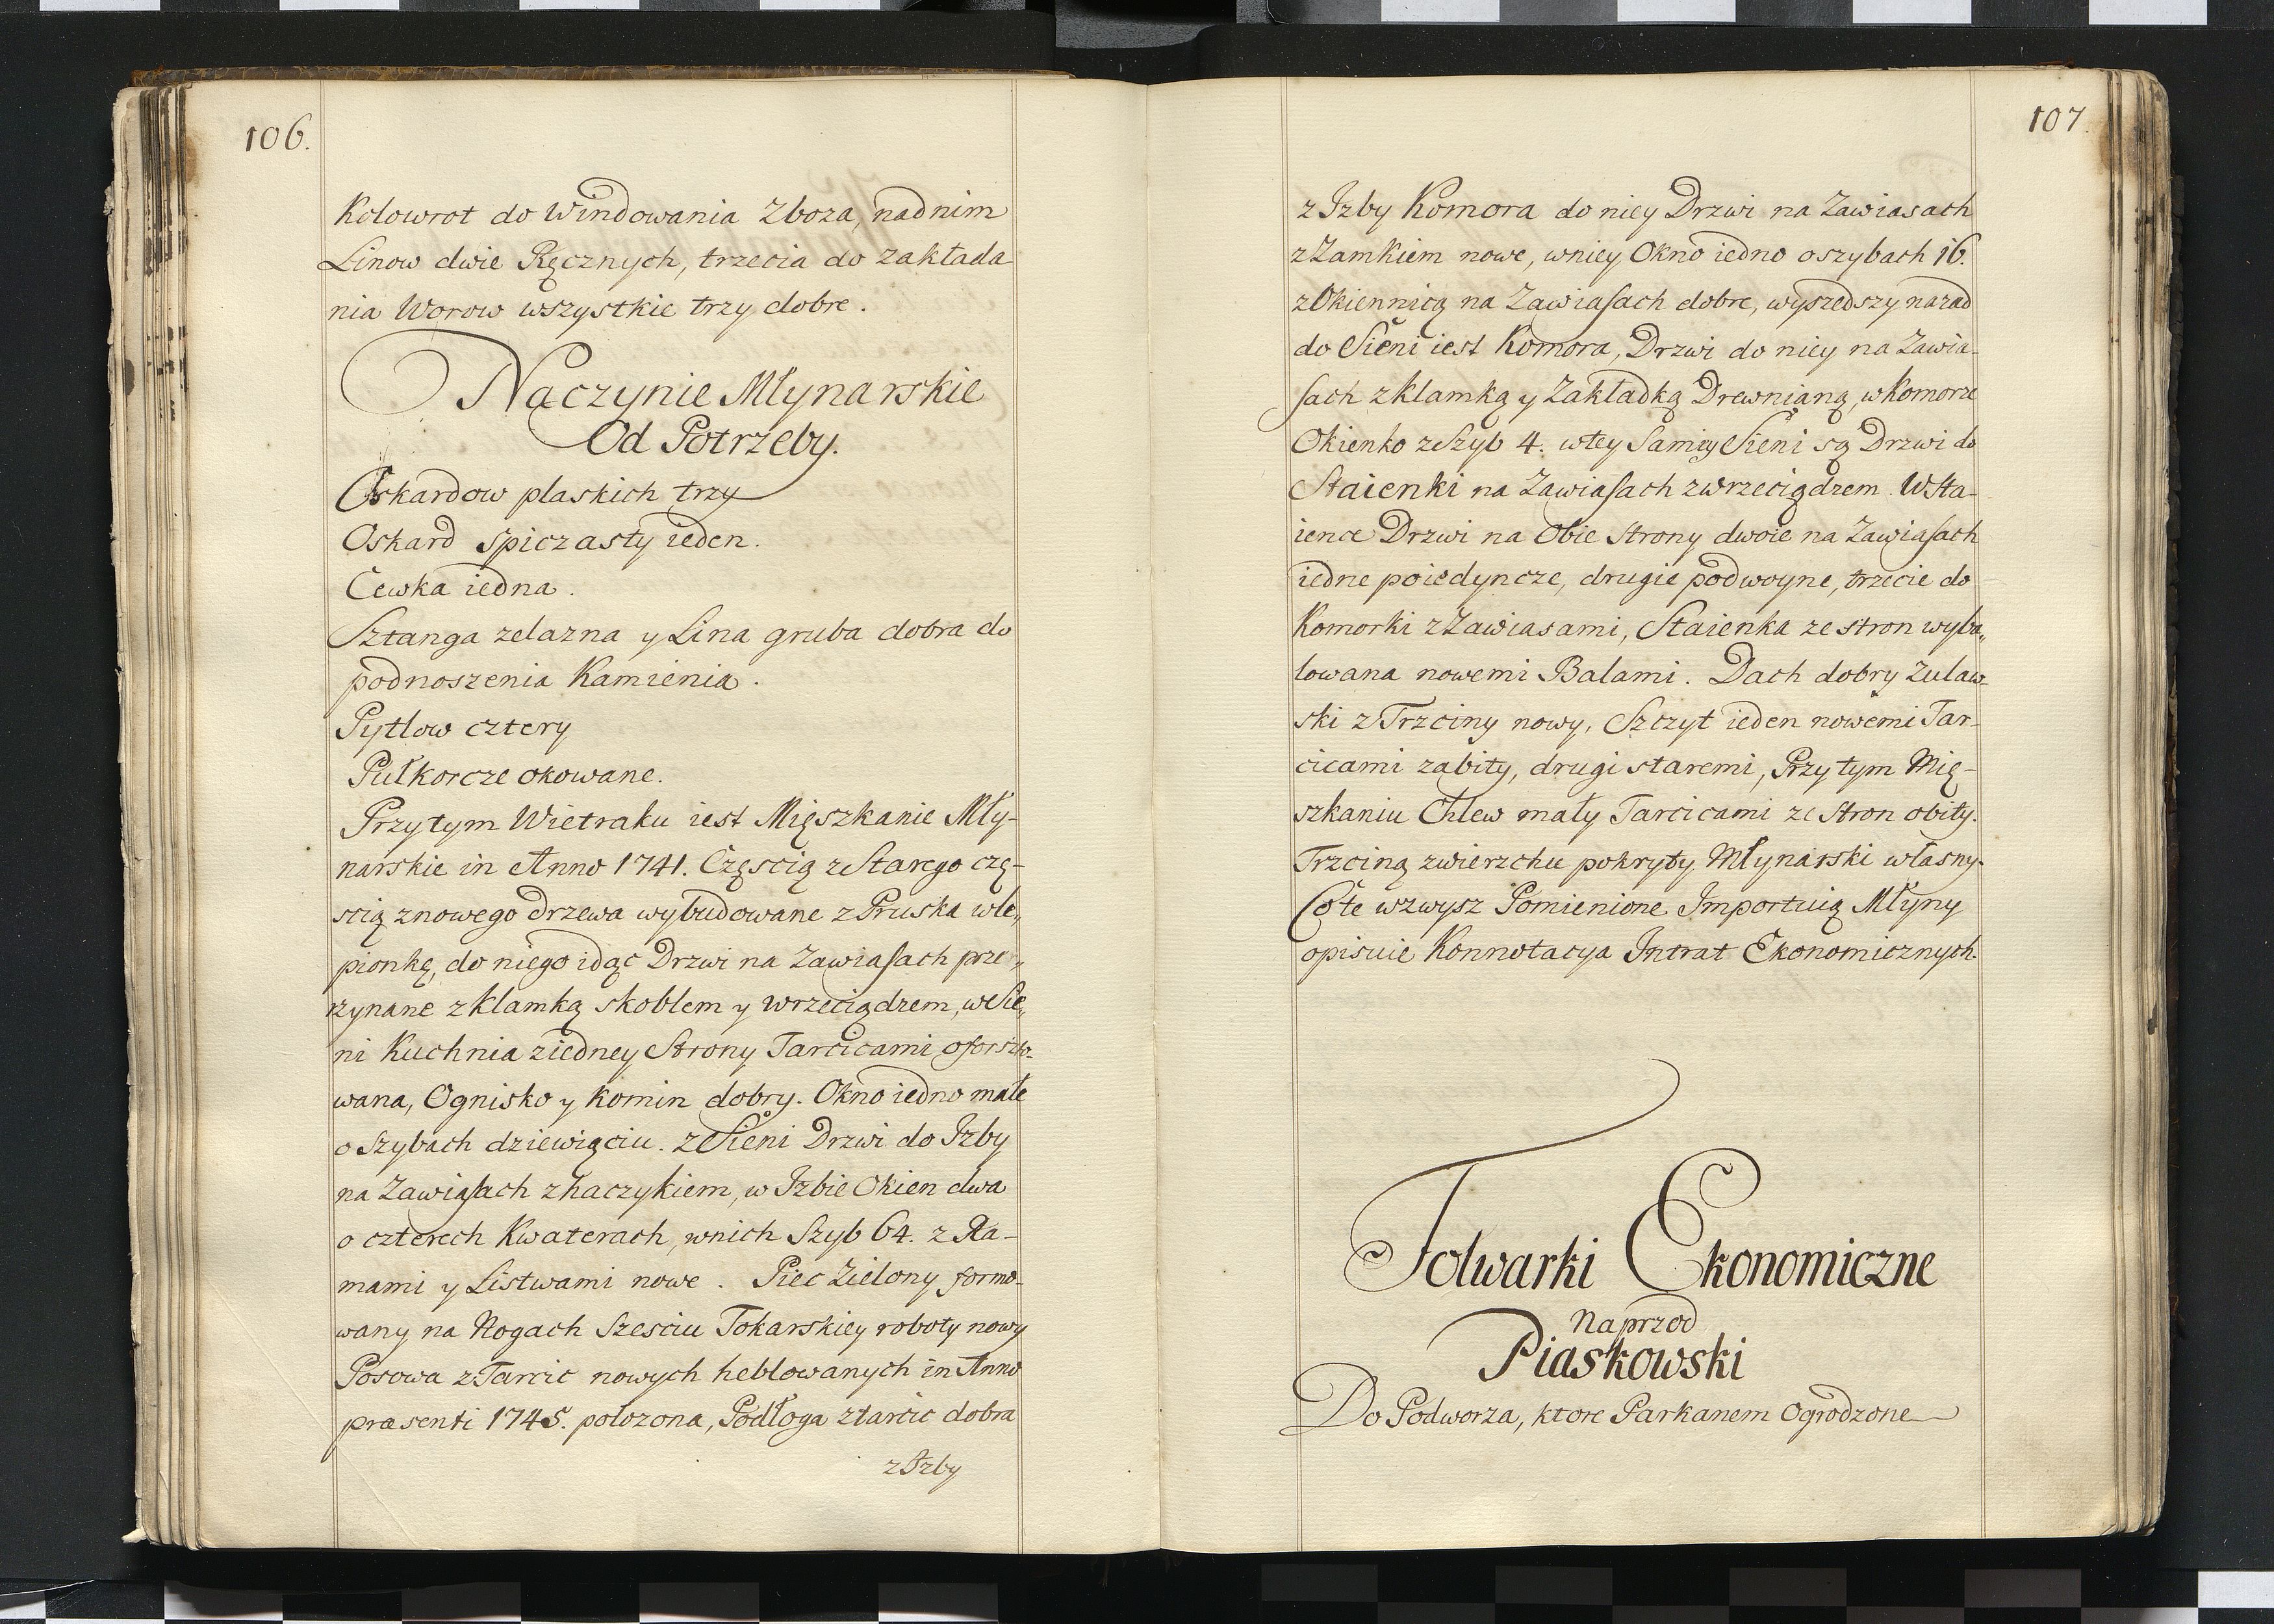 106.
Kolowrot do Windowania Zboza, nad nim
Linow dwie Ręcznych, trzecia do zakłada-
nia Worow wszystkie trzy dobre.
Naczynie Młynarskie
Od Potrzeby.
Oskardow plaskich trzy
Oskard spiczasty ieden.
Cewka iedna.
Sztanga zelazna y Lina gruba dobra do
podnoszenia Kamienia.
Pytlow cztery
Pułkorcze okowane.
Przytym Wietraku iest Mięszkanie Mły-
narskie in Anno 1741. Częscią z Starego czę-
scią z nowego drzewa wybudowane z Pruska w le„
pionkę, do niego idąc Drzwi na Zawiasach prze„
rzynane z klamką skoblem y wrzeciądzem, w Sie„
ni Kuchnia z iedney Strony Tarcicami oforszto-
wana, Ognisko y Komin dobry. Okno iedno małe
o szybach dziewięciu. z Sieni Drzwi do Izby
na Zawiasach z haczykiem, w Izbie Okien dwa
o czterech Kwaterach, w nich Szyb 64. z Ra-
mami y Listwami nowe. Piec Zielony formo-
wany na Nogach Szesciu Tokarskiey roboty nowy
Posowa z Tarcic nowych heblowanych in Anno
præsenti 1745. polozona, Podłoga z tarcic dobra
z Izby
107.
z Izby Komora do niey Drzwi na Zawiasach
z Zamkiem nowe, w niey Okno iedno o szybach 16.
z Okiennicą na Zawiasach dobre, wyszedszy nazad
do Sieni iest Komora, Drzwi do niey na Zawia-
sach z klamką y Zakładką Drewnianą, w Komorze
Okienko z Szyb 4. w tey Samiey Sieni są Drzwi do
Staienki na Zawiasach z wrzeciądzem. W Sta-
ience Drzwi na Obie Strony dwoie na Zawiasach
iedne poiedyncze, drugie podwoyne, trzecie do
Komorki z Zawiasami, Staienka ze stron wyba„
lowana nowemi Balami. Dach dobry Zulaw-
ski z Trzciny nowy, Szczyt ieden nowemi Tar-
cicami zabity, drugi staremi, Przy tym Mię-
szkaniu Chlew mały Tarcicami ze Stron obity.
Trzciną z wierzchu pokryty Młynarski własny.
Co te wzwysz Pomienione Importuią Młyny
opisuie Konnotacya Intrat Ekonomicznych.
Folwarki Ekonomiczne
Naprzod
Piaskowski
Do Podworza, ktore Parkanem Ogrodzone